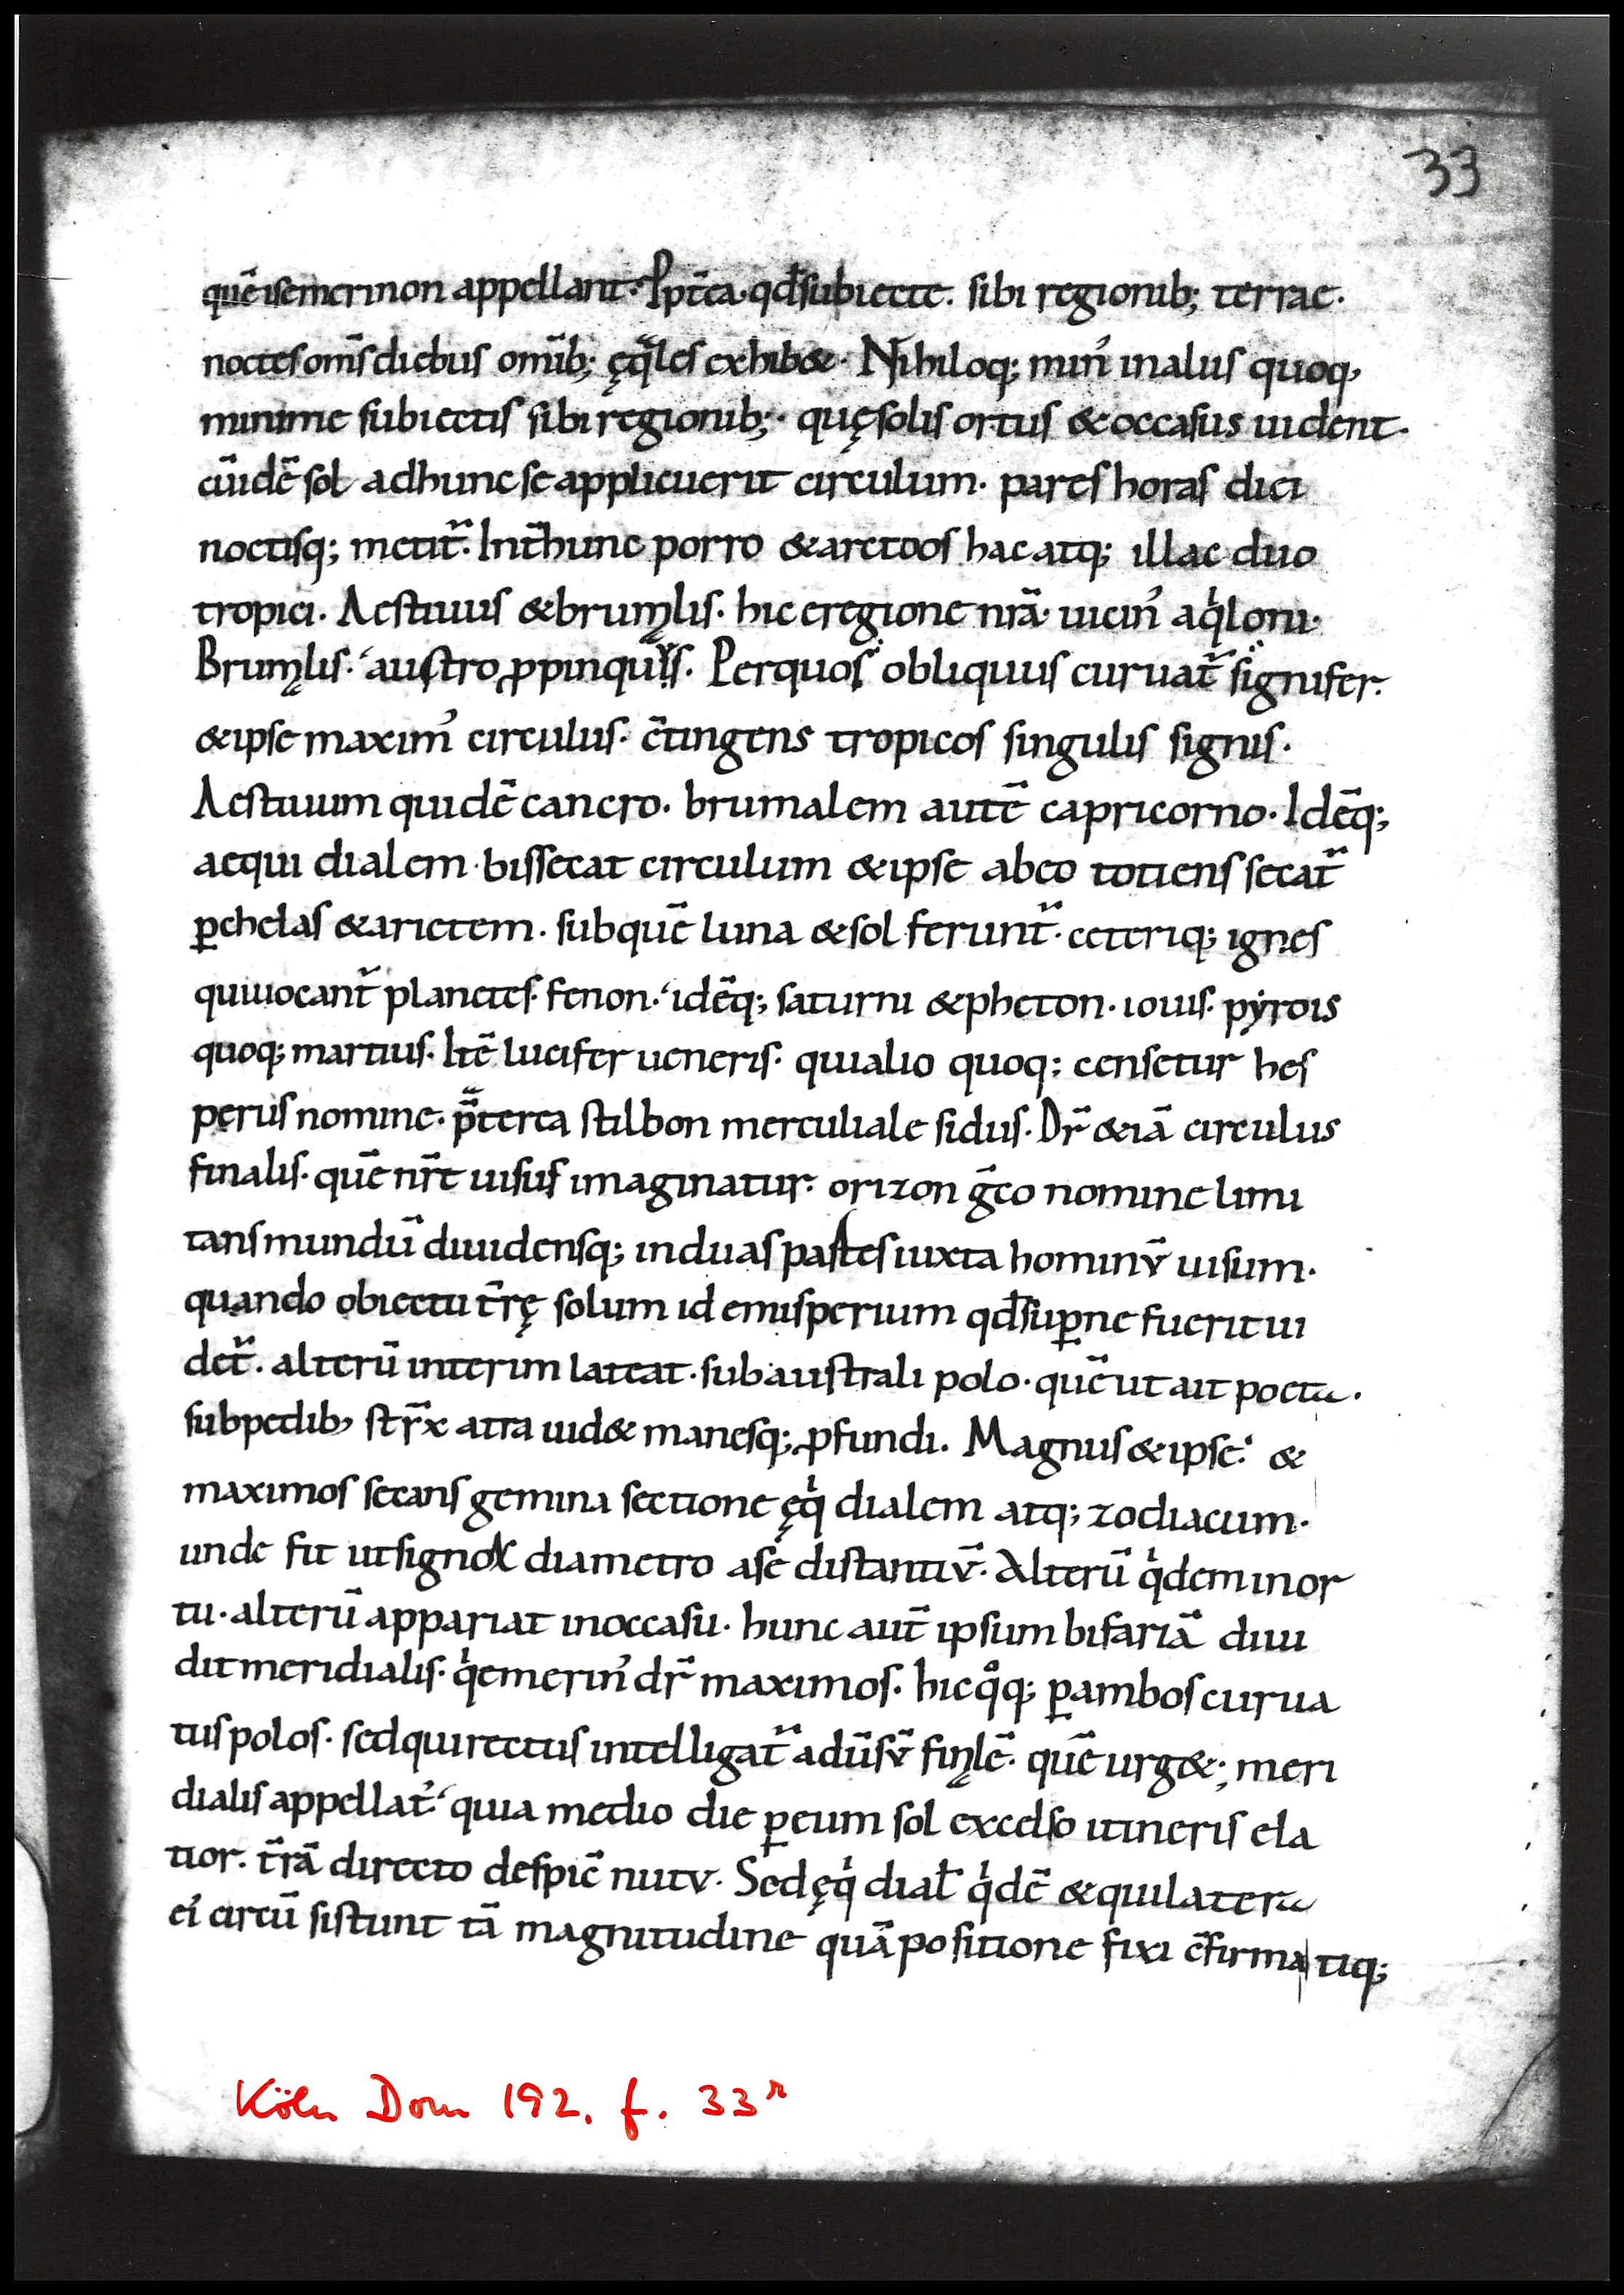 33
quē isemerinon appellant· Ppt̄ea· qđ subiecte· sibi regionib; terrae·
noctes om̄s diebus om̄ib; ęq̄les exhib&· Nihiloq; min᾽ in alus quoq,
minime subiectis sibi regionib;· quę solis ortus & occasus uident·
cū idē sol ad hunc se applicuerit circulum· pares horas diei
noctisq; metit᷑· Int̄ hunc porro & arctoos hac atq; illac duo
tropici· Aestiuus & brumalis· hic e regione nr̄a· uicin᾽ aqͥloni·
Brumalis· austro ꝓpinquus· Per quos obliquus curuat᷑ signifer·
& ipse maxim᾽ circulus· c̄tingens tropicos singulis signis·
Aestiuum quidē cancro· brumalem autē capricorno· Idēq;
aequi dialem· bissecat circulum & ipse ab eo totiens secat᷑
ꝑ chelas & arietem· sub quē luna & sol ferunt᷑· ceteriq; ignes
qui uocant᷑ planetes· fenon· idēq; saturni & pheton· iouis· pyrois
quoq; martius· Itē lucifer ueneris· qui alio quoq; censetur hes
perus nomine· p̄terea stilbon merculiale sidus· Dr̄ &iā circulus
finalis· quē nr̄e uisus imaginatur· orizon ḡco nomine limi
tans mundū diuidensq; in duas partes iuxta hominv̄ uisum·
quando obiectu t̄rę solum id emisperium qđ suꝑne fuerit ui
det᷑· alterū interim lateat· sub australi polo· quē ut ait poeta·
sub pedib, str̄x atra uid& manesq; ꝓfundi· Magnus & ipse· &
maximos secans gemina sectione ęqͥ dialem atq; zodiacum·
unde fit ut signoꝝ diametro a se distantiv̄· Alterū qͥdem in or
tu· alterū appariat in occasu· hunc aut̄ ipsum bifariā diui
dit meridialis· qͥ emerin᾽ dr̄ maximos· hic qͦq; ꝑ ambos curua
tus polos· sed qui rectus intelligat᷑ adus̄v̄ finalē· quē urg&; meri
dialis appellat᷑· quia medio die ꝑ eum sol excelso itineris ela
tior· t̄rā directo despic̄ nutv· Sed ęqͥ dial̄ qͥdē & quilatera
ei circū sistunt tā magnitudine quā positione fixi c̄firmatiq;
Köln Dom 192, f. 33r